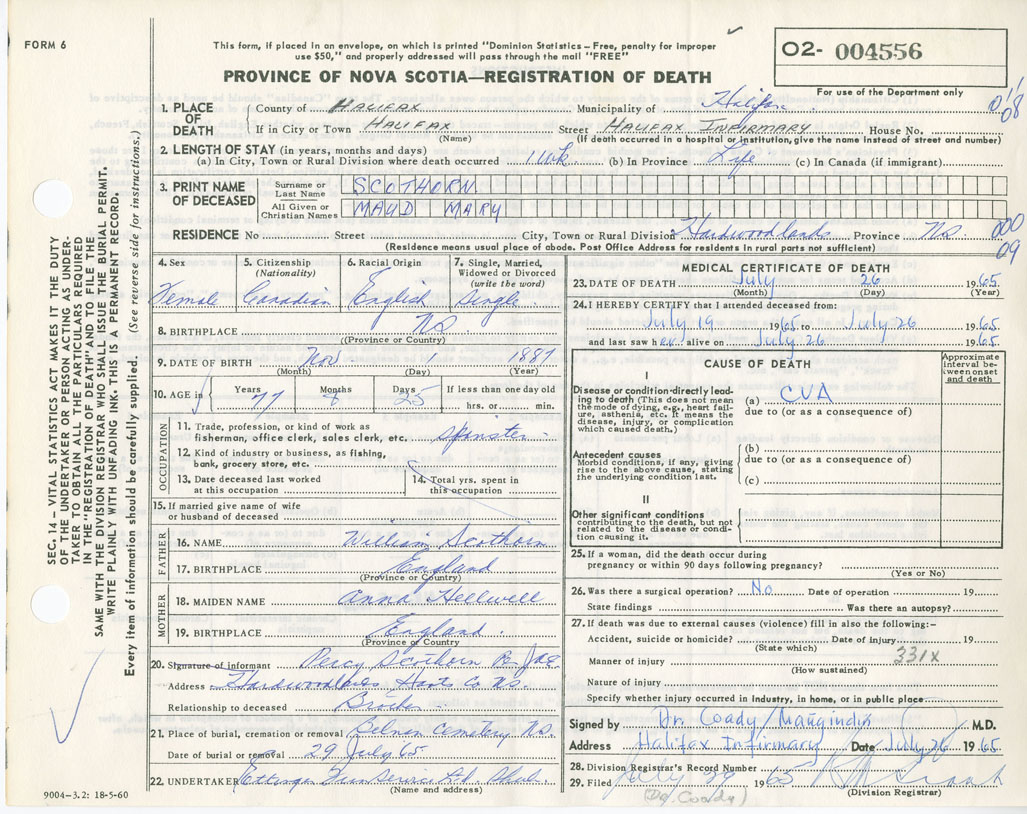 FORM 6
This form, if placed in an envelope, on which is printed "Dominion Statistics – Free, penalty for improper
use $50," and properly addressed will pass through the mail "FREE"
PROVINCE OF NOVA SCOTIA—REGISTRATION OF DEATH
02- 004556
For use of the Department only
1. PLACE OF DEATH County of HALIFAX Municipality of Halifax 0'08
If in City or Town HALIFAX (Name) Street HALIFAX INFIRMARY House No.
(If death occurred in a hospital or institution, give the name instead of street and number)
2. LENGTH OF STAY (in years, months and days)
(a) In City, Town or Rural Division where death occurred 1 Wk. (b) In Province Life (c) In Canada (if immigrant)
3. PRINT NAME OF DECEASED Surname or Last Name SCOTHORN
All Given or Christian Names MAUD MARY
RESIDENCE No Street City, Town or Rural Division Hardwoodlands Province N.S. 000 09
(Residence means usual place of abode. Post Office Address for residents in rural parts not sufficient)
SEC. 14 – VITAL STATISTICS ACT MAKES IT THE DUTY
OF THE UNDERTAKER OR PERSON ACTING AS UNDER-
TAKER TO OBTAIN ALL THE PARTICULARS REQUIRED
IN THE "REGISTRATION OF DEATH" AND TO FILE THE
SAME WITH THE DIVISION REGISTRAR WHO SHALL ISSUE THE BURIAL PERMIT.
WRITE PLAINLY WITH UNFADING INK. THIS IS A PERMANENT RECORD.
Every item of information should be carefully supplied. (See reverse side for instructions.)
4. Sex Female
5. Citizenship (Nationality) Canadian
6. Racial Origin English
7. Single, Married, Widowed or Divorced (write the word) Single
8. BIRTHPLACE N.S.
(Province or Country)
9. DATE OF BIRTH Nov 1 1887
(Month) (Day) (Year)
10. AGE in Years 77 Months 8 Days 25 If less than one day old
hrs. or min.
OCCUPATION
11. Trade, profession, or kind of work as
fisherman, office clerk, sales clerk, etc. spinster
12. Kind of industry or business, as fishing,
bank, grocery store, etc.
13. Date deceased last worked
at this occupation
14. Total yrs. spent in
this occupation
15. If married give name of wife
or husband of deceased
FATHER
16. NAME William Scothorn
17. BIRTHPLACE England
(Province or Country)
MOTHER
18. MAIDEN NAME Anna Hellwell
19. BIRTHPLACE England
(Province or Country)
20. Signature of informant Percy Scothorn
Address Hardwoodlands Hants Co N.S.
Relationship to deceased Brother
21. Place of burial, cremation or removal Cemetery N.S.
Date of burial or removal 29 July 65
22. UNDERTAKER Ettinger
(Name and address)
9004–3.2: 18-5-60
MEDICAL CERTIFICATE OF DEATH
23. DATE OF DEATH July 26 1965
(Month) (Day) (Year)
24. I HEREBY CERTIFY that I attended deceased from:
July 19 1965 to July 26 1965
and last saw her alive on July 26 1965.
CAUSE OF DEATH
Approximate interval between onset and death
I
Disease or condition directly leading to death (This does not mean the mode of dying, e.g., heart failure, asthenia, etc. It means the disease, injury, or complication which caused death.)
(a) CVA
due to (or as a consequence of)
Antecedent causes
Morbid conditions, if any, giving rise to the above cause, stating the underlying condition last.
(b)
due to (or as a consequence of)
(c)
II
Other significant conditions
contributing to the death, but not related to the disease or condition causing it.
25. If a woman, did the death occur during
pregnancy or within 90 days following pregnancy?
(Yes or No)
26. Was there a surgical operation? No Date of operation 19
State findings Was there an autopsy?
27. If death was due to external causes (violence) fill in also the following:–
Accident, suicide or homicide? Date of injury 19
(State which)
331X
Manner of injury
(How sustained)
Nature of injury
Specify whether injury occurred in industry, in home, or in public place
Signed by Dr. Coady / M.D.
Address Halifax Infirmary Date July 26 1965
28. Division Registrar's Record Number
29. Filed July 29 1965
(Division Registrar)
(Dr. Coady)